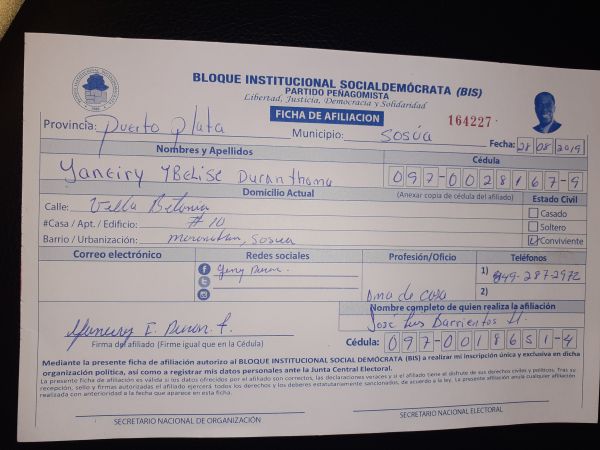 BLOQUE INSTITUCIONAL SOCIALDEMÓCRATA (BIS)
PARTIDO PEÑAGOMISTA
Libertad, Justicia, Democracia y Solidaridad
FICHA DE AFILIACION
164227
Provincia: Puerto Plata Municipio: Sosúa Fecha: 28 08 2019
Nombres y Apellidos Cédula
Yaneiry YBelise Duran 097-0028167-9
Domicilio Actual (Anexar copia de cédula del afiliado) Estado Civil
Calle: Villa Betania Casado
#Casa / Apt. / Edificio: #10 Soltero
Barrio / Urbanización: Sosua Conviviente
Correo electrónico Redes sociales Profesión/Oficio Teléfonos
Yeny Duran 1) 849-287-2972
Ama de casa 2)
Nombre completo de quien realiza la afiliación
José Luis Barrientos
Duran
Firma del afiliado (Firme igual que en la Cédula) Cédula: 097-0018651-4
Mediante la presente ficha de afiliación autorizo al BLOQUE INSTITUCIONAL SOCIAL DEMÓCRATA (BIS) a realizar mi inscripción única y exclusiva en dicha
organización política, así como a registrar mis datos personales ante la Junta Central Electoral.
La presente ficha de afiliación es válida si los datos ofrecidos por el afiliado son correctos, las declaraciones veraces y si el afiliado tiene el disfrute de sus derechos civiles y políticos. Tras su
recepción, sello y firmas autorizadas el afiliado ejercerá todos los derechos y los deberes estatutariamente sancionados, de acuerdo a la ley. La presente afiliación anula cualquier afiliación
realizada con anterioridad a la fecha que aparece en esta ficha.
SECRETARIO NACIONAL DE ORGANIZACIÓN SECRETARIO NACIONAL ELECTORAL